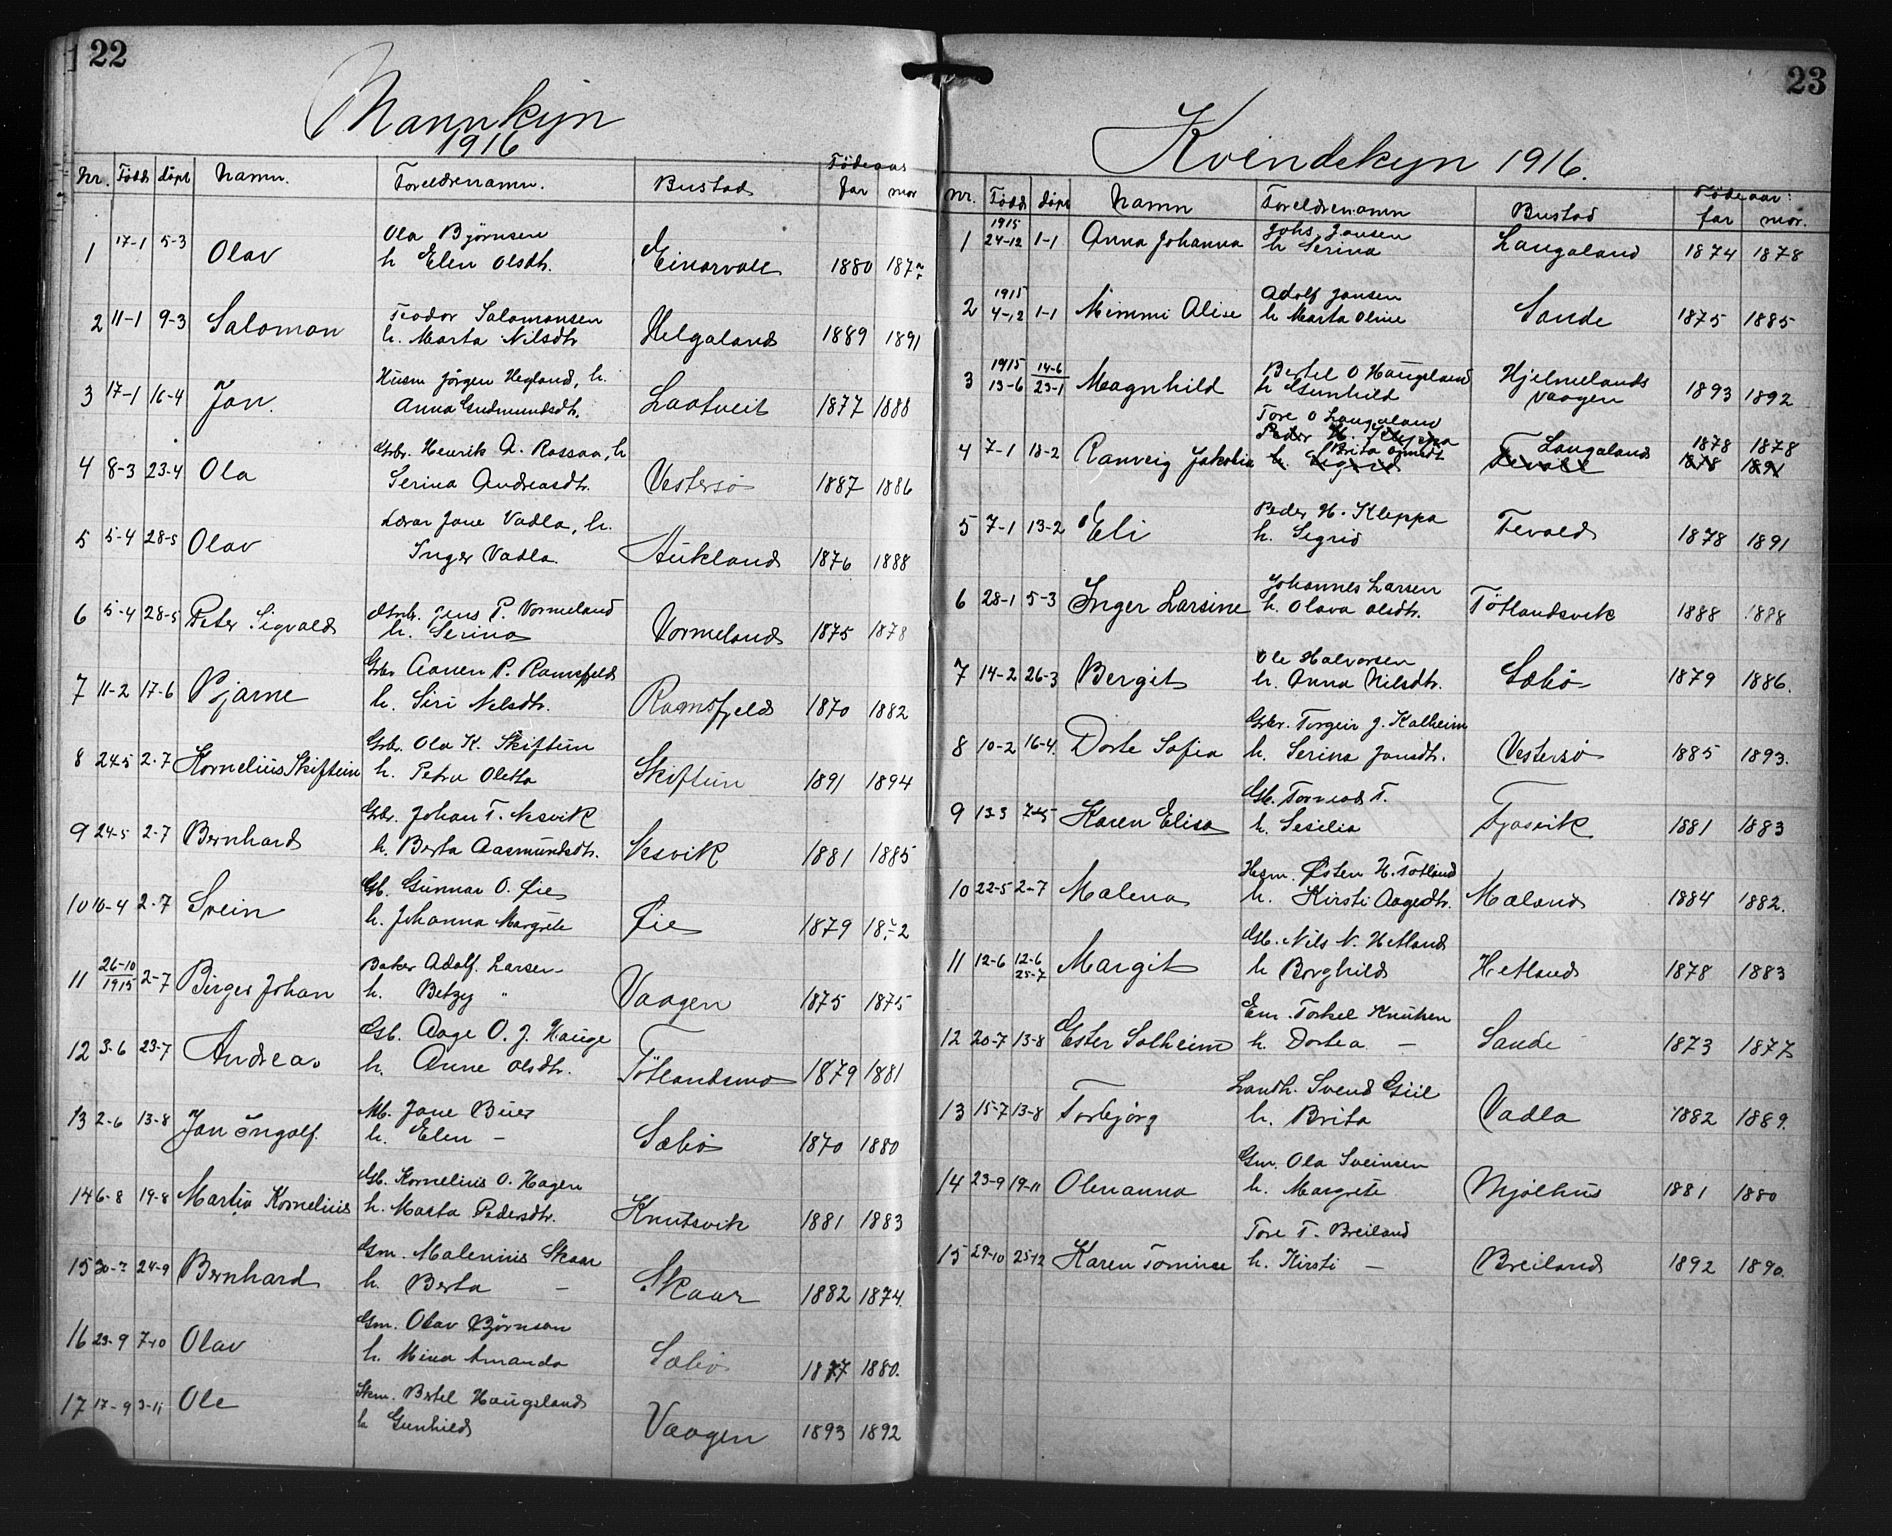 22
Mannkyn
1916
Nr. Född döpt Namn. Foreldrenamn. Bustad Födeaar far mor
1 17-1 5-3 Olav Ola Björnsen Einarvoll 1880
h Elen Olsdtr.
2 11-1 9-3 Salomon Teodor Salomonsen Helgaland 1889 1891
h. Marta Nilsdtr
3 17-1 16-4 Jan. Husm Jörgen Hegland, h. Laatveit 1877 1888
Anna Gudmundsdtr.
4 8-3 23-4 Ola Gbr. Henrik A. Rossaa, h Vestersö 1887 1886
Serina Andreasdtr.
5 5-4 28-5 Olav Lærar Jone Vadla, h. Aukland 1876 1888
Inger Vadla.
6 5-4 28-5 Peter Sigvald Jens P. Vormeland Vormeland 1875 1878
h. Serina
7 11-2 17-6 Bjarne Gbr Aanen P. Ramsfjeld Ramsfjeld 1870 1882
h. Siri Nilsdtr.
8 24-5 2-7 Kornelius Skiftun Gbr. Ola K. Skiftun Skiftun 1891 1894
h. Petra Oletta
9 24-5 2-7 Bernhard Gbr. Johan T. Nesvik Nesvik 1881 1885
h. Berta Aasmundsdtr.
10 10-4 2-7 Svein Gb. Gunnar O. Øie Øie 1879
h. Johanna Margrete
11 26-10 1915 2-7 Birger Johan Baker Adolf Larsen Vaagen 1875 1875
h. Betzy "
12 3-6 23-7 Andreas Gb. Aage O. J. Hauge Tötlandsmo 1879 1881
h. Anne Olsdtr.
13 2-6 13-8 Jan Ingolf. Jone Buer Sæbö 1870 1880
h. Elen –
14 6-8 19-8 Martin Kornelius Gb. Kornelius O. Hagen Knutsvik 1881 1883
h. Marta Pedersdtr.
15 30-7 24-9 Bernhard Gm. Malenius Skaar Skaar 1882 1874.
h. Berta –
16 23-9 7-10 Olav Gm. Olav Björnson Sæbö 1877 1880.
h. Mina Amanda
17 17-9 3-11 Ole Bertel Haugeland Vaagen 1893 1892
h Gunhild
23
Kvindekyn 1916.
Nr. Född döpt Namn Foreldrenamn Bustad Födeaar: far mor.
1 1915 24-12 1-1 Anna Johanna Johs. Jansen Langaland 1874 1878
h Serina
2 1915 4-12 1-1 Mimmi Alise Adolf Jansen Sande 1875 1885
h Marta Oline
3 1915 13-6 14-6 23-1 Magnhild Bertel O Haugeland Hjelmelands 1893 1892
h Gunhild vaagen
4 7-1 13-2 Ranveig Jakobia Tore O Langaland Langaland 1878 1878
Peder H. Kleppa Brita
h. Sigrid Tevold 1878 1891
5 7-1 13-2 Eli Peder H. Kleppa Tevold 1878 1891
h. Sigrid
6 28-1 5-3 Inger Larsine Johannes Larsen Tötlandsvik 1888 1888
h. Olava Olsdtr.
7 14-2 26-3 Bergit Ole Halvorsen Sæbö 1879 1886.
h. Anna Nilsdtr.
8 10-2 16-4. Dorte Sofia Gbr. Torgeir J. Kalheim Vestersö 1885 1893.
h. Serina Jonsdtr.
9 13-3 Karen Elisa Gb. Tormod T. Tjosvik 1881 1883
h. Sesilia
10 22-5 2-7 Malena Hsm. Østen H. Tötland Mæland 1884 1882.
h. Kirsti Aagedtr.
11 12-6 12-6 25-7 Margit Gb. Nils N. Hetland Hetland 1878 1883
h Borghild
12 20-7 13-8 Ester Solheim Em. Torkel Knutsen Sande 1873 1877
h. Dortea –
13 15-7 13-8 Torbjörg Landh. Svend Giil Vadla 1882 1889.
h. Brita
14 23-9 19-11 Olenanna Gm. Ola Sveinsen Mjölhus 1881 1880
h. Margrete
15 29-10 25-12 Karen Tomine Tore T. Breiland Breiland 1892 1890.
h. Kirsti –